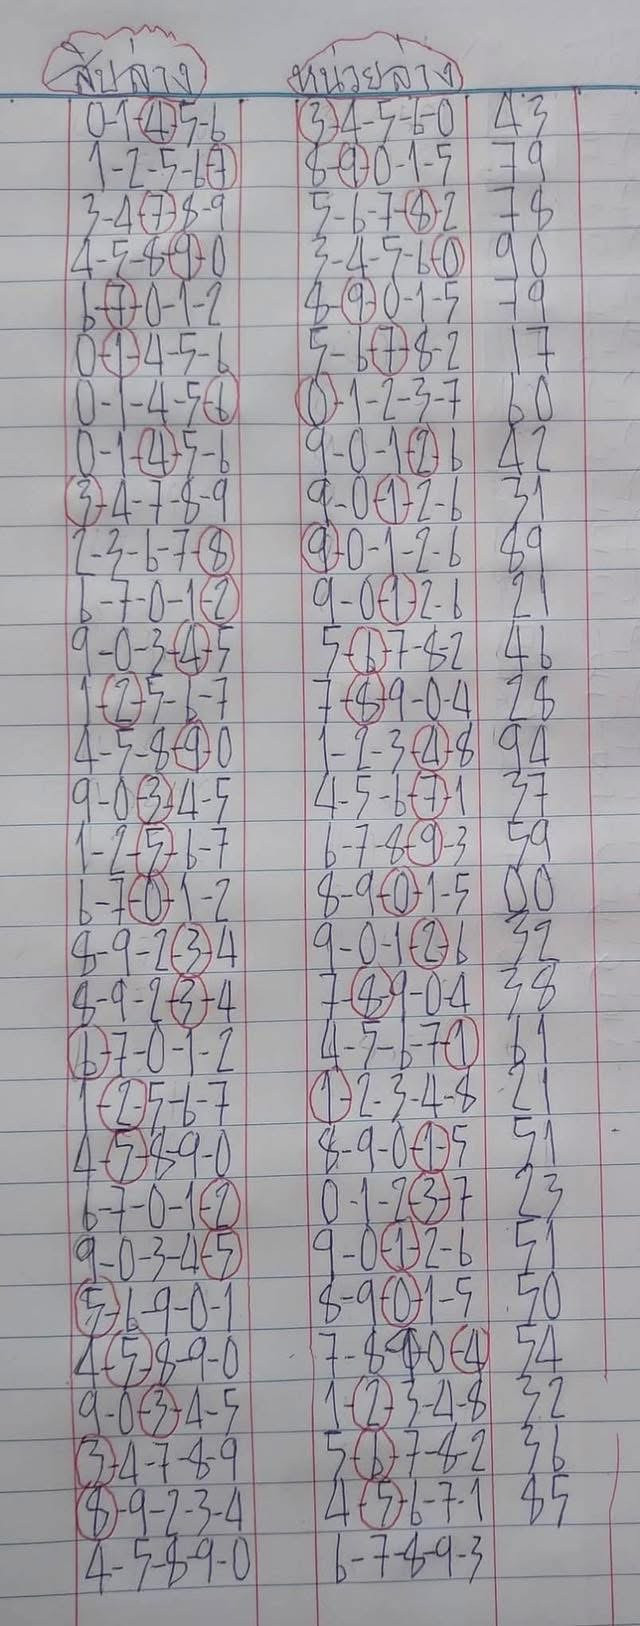 สิบล่าง หน่วยล่าง
0-1-4-5-6 3-4-5-6-0 43
1-2-5-6-7 8-9-0-1-5 79
3-4-7-8-9 5-6-7-8-2 78
4-5-8-9-0 3-4-5-6-0 90
6-7-0-1-2 8-9-0-1-5 79
0-1-4-5-6 5-6-7-8-2 17
0-1-4-5-6 0-1-2-3-7 60
0-1-4-5-6 9-0-1-2-6 42
3-4-7-8-9 9-0-1-2-6 31
2-3-6-7-8 9-0-1-2-6 89
6-7-0-1-2 9-0-1-2-6 21
9-0-3-4-5 5-6-7-8-2 46
1-2-5-6-7 7-8-9-0-4 28
4-5-8-9-0 1-2-3-4-8 94
9-0-3-4-5 4-5-6-7-1 37
1-2-5-6-7 6-7-8-9-3 59
6-7-0-1-2 8-9-0-1-5 00
8-9-2-3-4 9-0-1-2-6 32
8-9-2-3-4 7-8-9-0-4 38
6-7-0-1-2 4-5-6-7-1 61
1-2-5-6-7 1-2-3-4-8 21
4-5-8-9-0 8-9-0-1-5 51
6-7-0-1-2 0-1-2-3-7 23
9-0-3-4-5 9-0-1-2-6 51
5-6-9-0-1 8-9-0-1-5 50
4-5-8-9-0 7-8-9-0-4 54
9-0-3-4-5 1-2-3-4-8 32
3-4-7-8-9 5-6-7-8-2 36
8-9-2-3-4 4-5-6-7-1 85
4-5-8-9-0 6-7-8-9-3